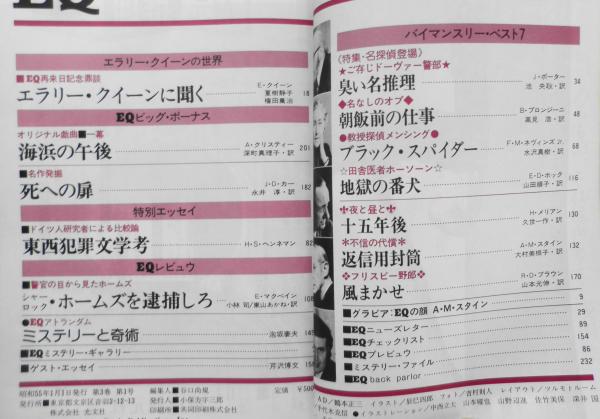 エラリー・クイーンの世界
■EQ再来日記念鼎談
エラリー・クイーンに聞く
E・クイーン
夏樹静子
権田萬治
18
EQビッグ・ボーナス
オリジナル戯曲■一幕
海浜の午後
A・クリスティー
深町眞理子・訳
201
■名作発掘
死への扉
J・D・カー
永井 淳・訳
182
特別エッセイ
■ドイツ人研究者による比較論
東西犯罪文学考
H・S・ヘンネマン
82
EQレビュウ
■警官の目から見たホームズ
シャーロック・ホームズを逮捕しろ
E・マクベイン
小林 司/東山あかね・訳
108
●EQアトランダム
ミステリーと奇術
泡坂妻夫
149
■EQミステリー・ギャラリー
■ゲスト・エッセイ
芹沢博文
154
昭和55年1月1日発行 第3巻 第1号
発行所■東京都文京区音羽2-12-13
株式会社 光文社
編集人■谷口尚規
発行人■小保方宇三郎
印刷所■共同印刷株式会社
定価 ¥500
バイマンスリー・ベスト7
〈特集・名探偵登場〉
★ご存じドーヴァー警部★
臭い名推理
J・ポーター
池 央耿・訳
34
◆名なしのオプ◆
朝飯前の仕事
B・プロンジーニ
高見 浩・訳
48
●教授探偵メンシング●
ブラック・スパイダー
F・M・ネヴィンズJr.
水沢真樹・訳
68
☆田舎医者ホーソーン☆
地獄の番犬
E・D・ホック
山田順子・訳
116
✤夜と昼と✤
十五年後
H・メリアン
久世一作・訳
130
＊不信の代償＊
返信用封筒
A・M・スタイン
大村美根子・訳
132
❖フリスビー野郎❖
風まかせ
R・D・ブラウン
山本光伸・訳
170
■グラビア:EQの顔 A・M・スタイン
9
■EQニューズレター
29
■EQチェックリスト
89
■EQプレビュウ
154
■ミステリー・ファイル
86
■EQ back parlor
232
AD/鶴本正三 イラスト/辰巳四郎 フォト/吉村則人 レイアウト/ツルモトルーム
●イラストレーション/中西立太 山本耀也 山野辺進 佐竹美保 深井 国